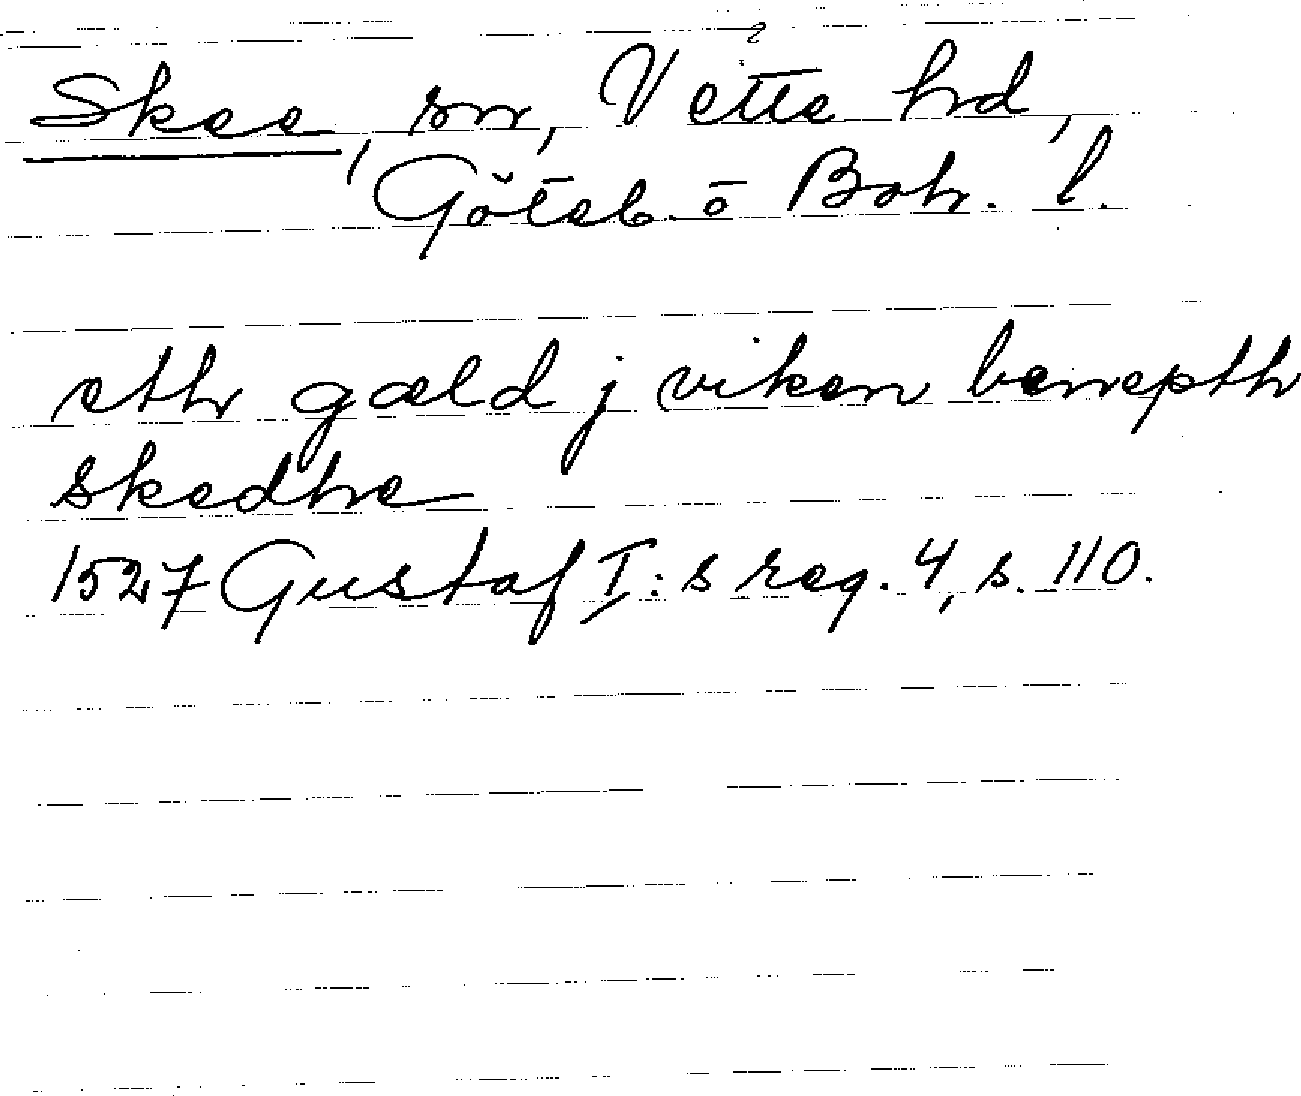 Skee, sn, Vette hd,
Göteb. o Boh. l.
ethr gæld j viken benepth
skedhe
1527 Gustaf I:s reg. 4, s. 110.